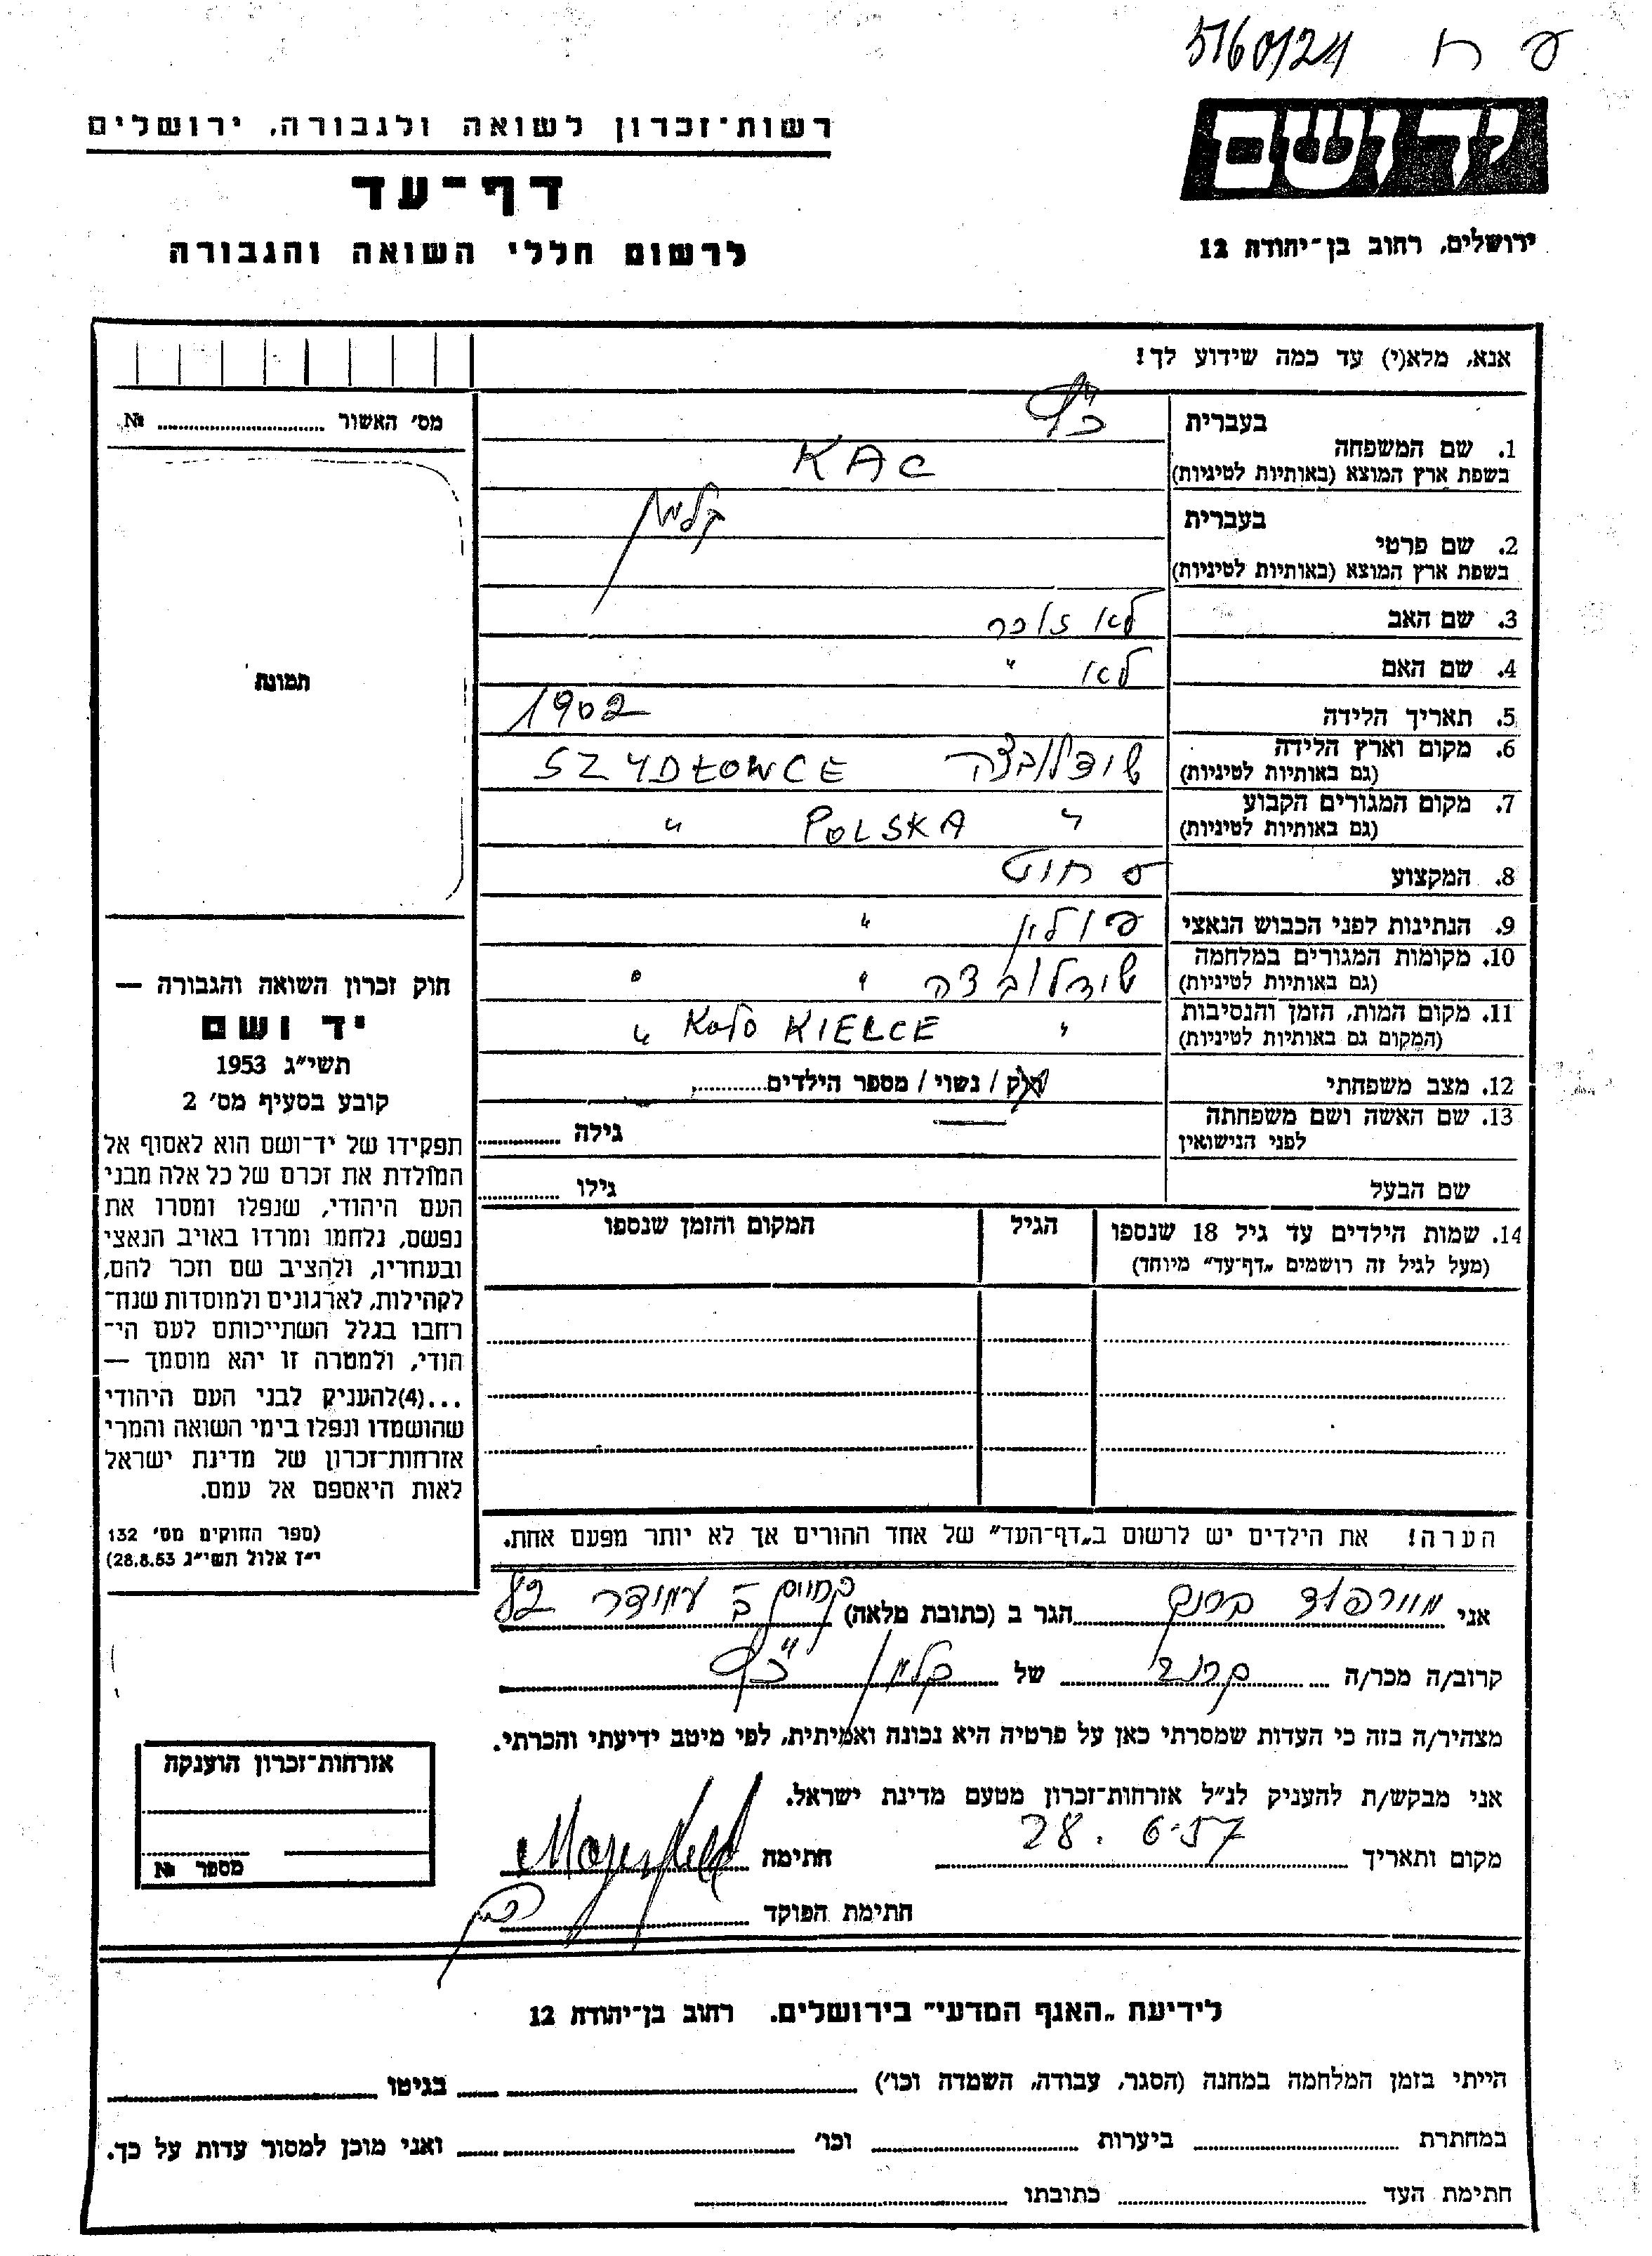 ע ח 5160/24
יד ושם
רשות־זכרון לשואה ולגבורה, ירושלים
דף־עד
ירושלים, רחוב בן־יהודה 12
לרשום חללי השואה והגבורה
אנא, מלא(י) עד כמה שידוע לך!
מס׳ האשור № 
תמונה
1. שם המשפחה
בעברית כ״ץ
בשפת ארץ המוצא (באותיות לטיניות) KAC
2. שם פרטי
בעברית קלמן
בשפת ארץ המוצא (באותיות לטיניות)
3. שם האב לא זוכר
4. שם האם לא "
5. תאריך הלידה 1902
6. מקום וארץ הלידה (גם באותיות לטיניות) שידלובצה SZYDŁOWCE
7. מקום המגורים הקבוע (גם באותיות לטיניות) " POLSKA "
8. המקצוע
9. הנתינות לפני הכבוש הנאצי פולין "
10. מקומות המגורים במלחמה (גם באותיות לטיניות) שידלובצה " "
11. מקום המות, הזמן והנסיבות (המקום גם באותיות לטיניות) " KOŁO KIELCE "
12. מצב משפחתי רוק / נשוי / מספר הילדים
13. שם האשה ושם משפחתה לפני הנישואין גילה
שם הבעל גילו
14. שמות הילדים עד גיל 18 שנספו הגיל המקום והזמן שנספו
(מעל לגיל זה רושמים „דף־עד" מיוחד)
הערה! את הילדים יש לרשום ב„דף־העד" של אחד ההורים אך לא יותר מפעם אחת.
חוק זכרון השואה והגבורה —
יד ושם
תשי״ג 1953
קובע בסעיף מס׳ 2
תפקידו של יד־ושם הוא לאסוף אל
המולדת את זכרם של כל אלה מבני
העם היהודי, שנפלו ומסרו את
נפשם, נלחמו ומרדו באויב הנאצי
ובעוזריו, ולהציב שם וזכר להם,
לקהילות, לארגונים ולמוסדות שנח־
רבו בגלל השתייכותם לעם הי־
הודי, ולמטרה זו יהא מוסמך —
...(4)להעניק לבני העם היהודי
שהושמדו ונפלו בימי השואה והמרי
אזרחות־זכרון של מדינת ישראל
לאות היאספם אל עמם.
(ספר החוקים מס׳ 132
י״ז אלול תשי״ג 28.8.53)
אני הגר ב (כתובת מלאה)
קרוב/ה מכר/ה של קלמן כ״ץ
מצהיר/ה בזה כי העדות שמסרתי כאן על פרטיה היא נכונה ואמיתית, לפי מיטב ידיעתי והכרתי.
אני מבקש/ת להעניק לנ״ל אזרחות־זכרון מטעם מדינת ישראל.
מקום ותאריך 28. 6.57 חתימה
חתימת הפוקד
אזרחות־זכרון הוענקה
מספר №
לידיעת „האגף המדעי" בירושלים. רחוב בן־יהודה 12
הייתי בזמן המלחמה במחנה (הסגר, עבודה, השמדה וכו׳) בגיטו
במחתרת ביערות וכו׳ ואני מוכן למסור עדות על כך.
חתימת העד כתובתו